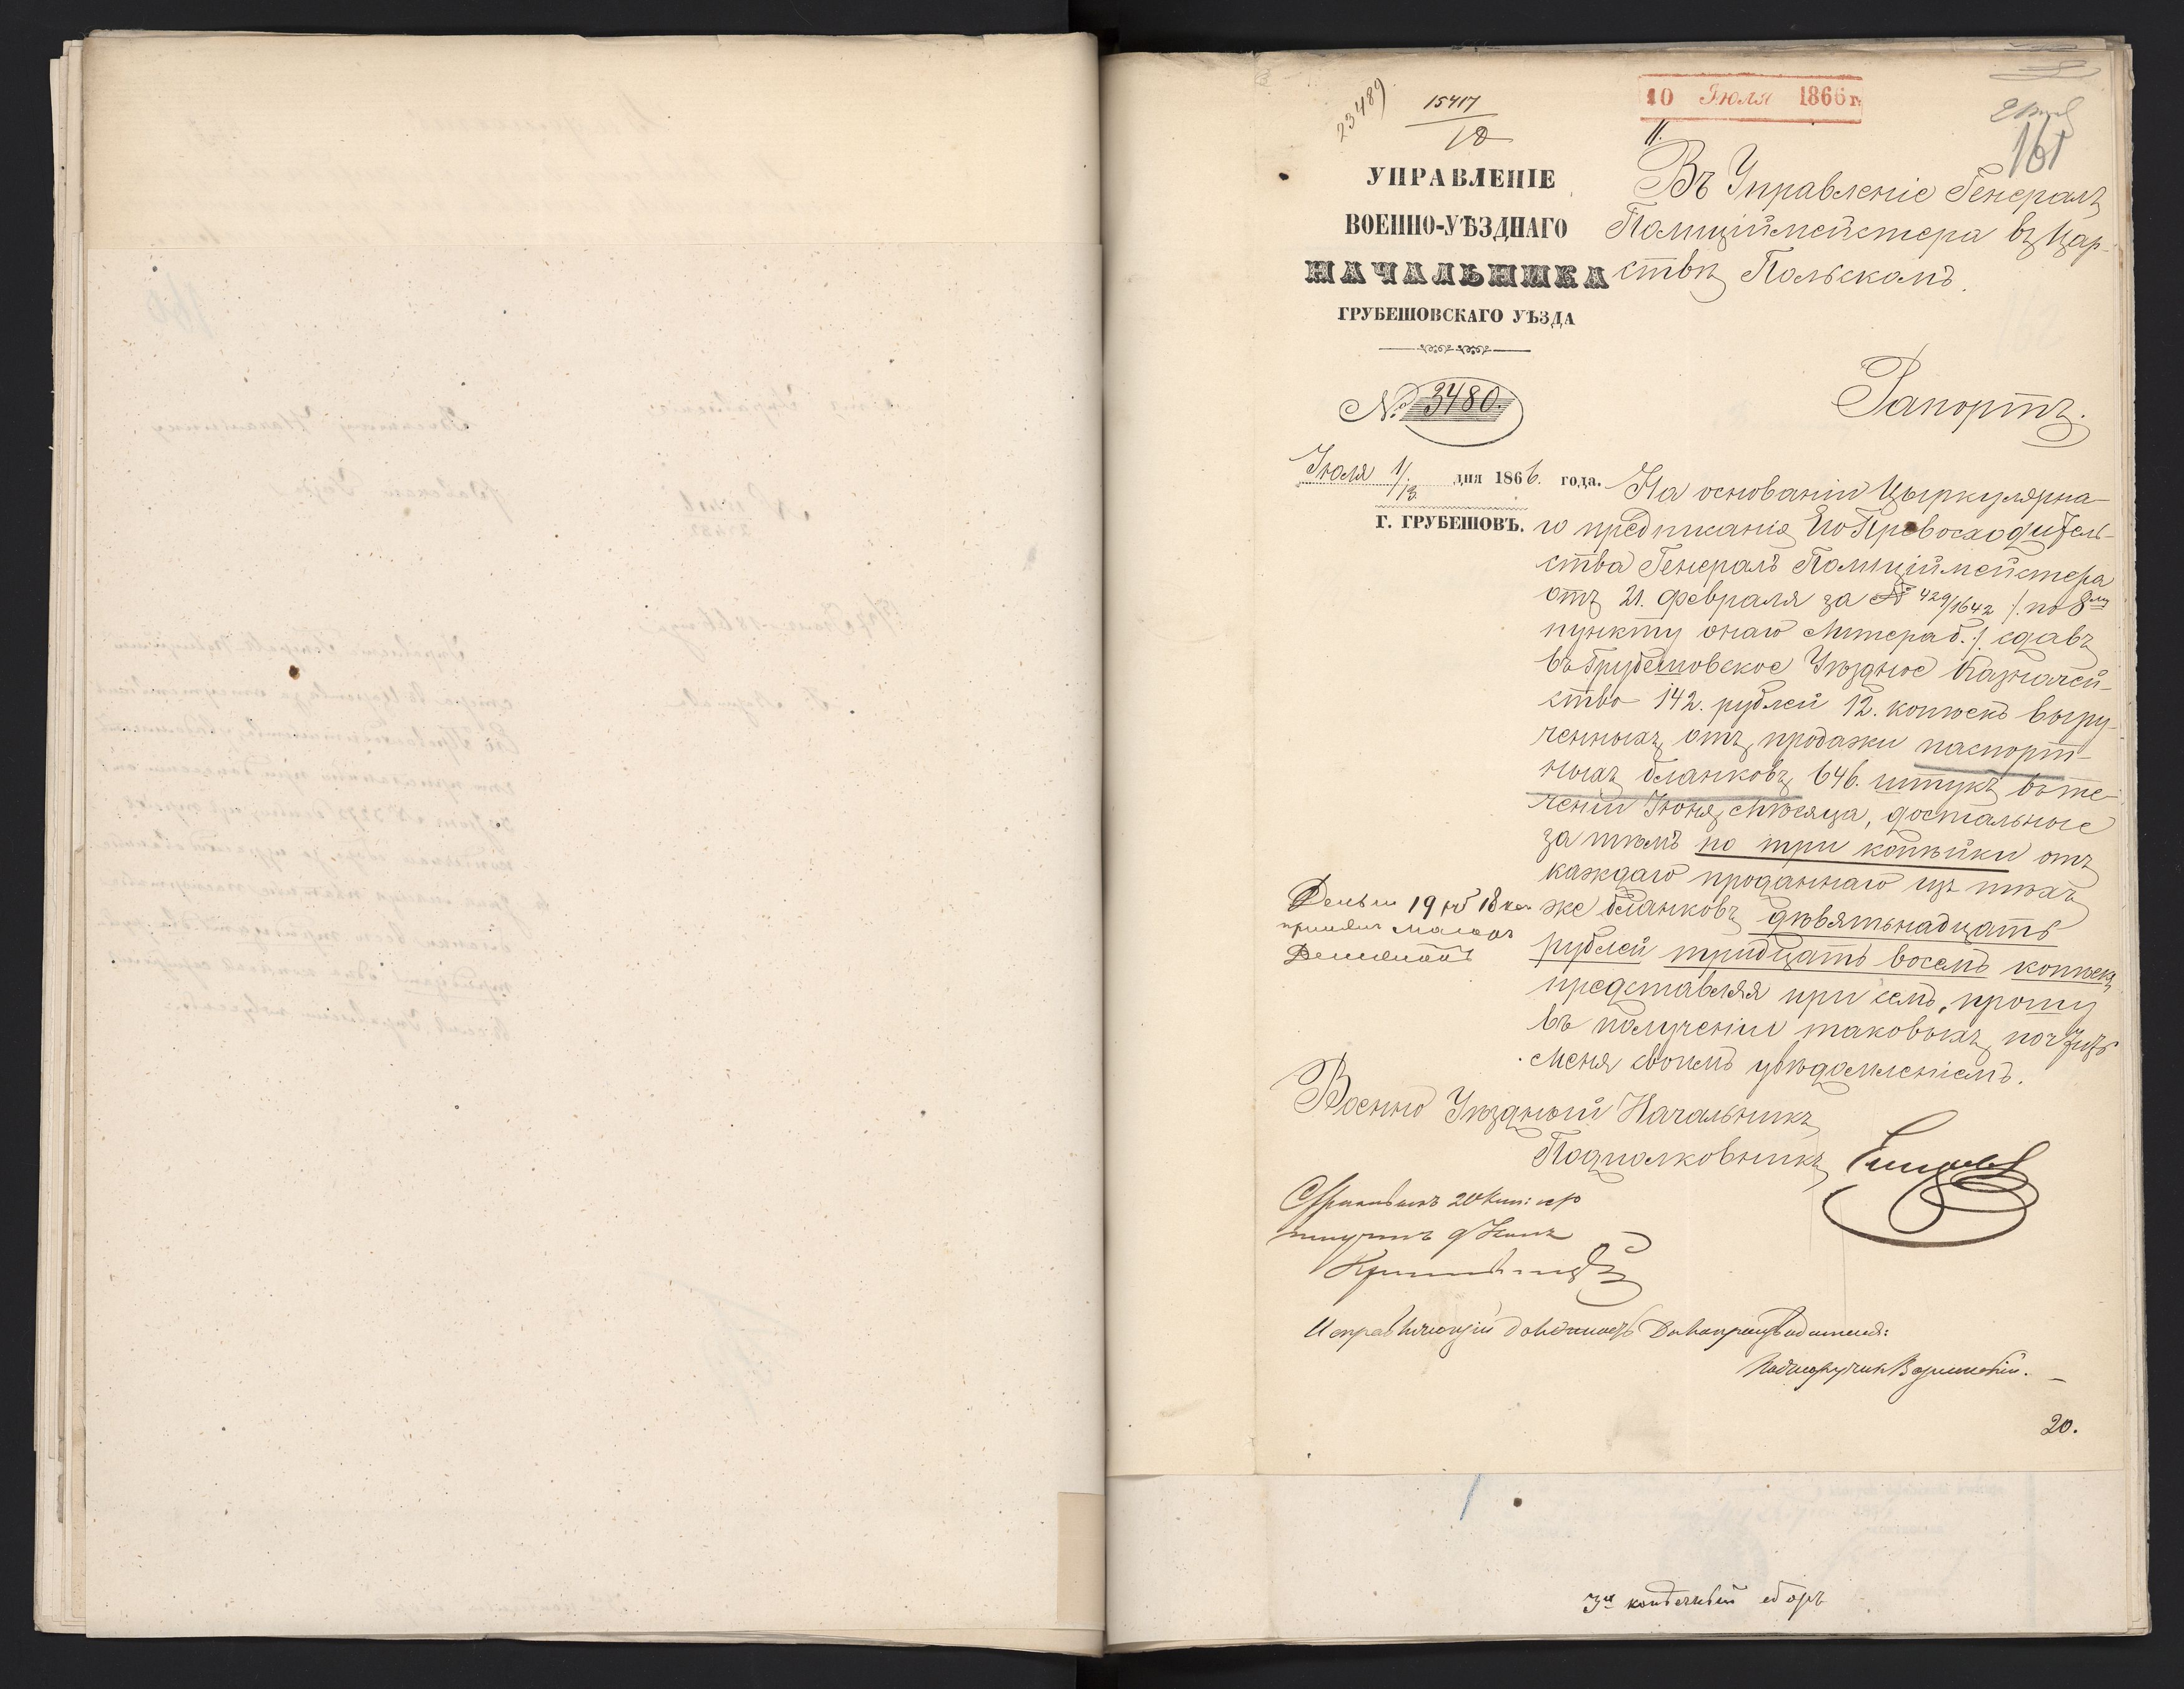 23489
15417
18
10 Июля 1866 г.
161
УПРАВЛЕНІЕ
ВОЕННО-УѢЗДНАГО
НАЧАЛЬНИКА
ГРУБЕШОВСКАГО УѢЗДА
№ 3480.
Іюля 1/13 дня 1866. года.
Г. ГРУБЕШОВЪ.
11.
Въ Управленіе Генералъ
Полиціймейстера въ Цар-
ствѣ Польскомъ.
Рапортъ.
На основаніи Цыркулярна-
го предписанія Его Превосходитель-
ства Генералъ Полиціймейстера
отъ 21. Февраля за № 429/1642 /. по 8му
пункту онаго Литера б. ./ сдавъ
въ Грубешовское Уѣздное Казначей-
ство 142. рублей 12. копѣекъ выру-
ченныхъ отъ продажи паспорт-
ныхъ бланковъ 646. штукъ въ те-
ченіи Іюня мѣсяца, достальные
за тѣмъ по три копѣйки отъ
каждаго проданнаго изъ тѣхъ
же бланковъ девятьнадцать
рублей тридцать восемь копѣекъ
представляя при семъ, прошу
въ полученіи таковыхъ почтить
меня своимъ увѣдомленіемъ.
Деньги 19 руб 18 коп
принялъ Маіоръ
Военно Уѣздный Начальникъ
Подполковникъ
20 коп: сер
получилъ
Исправляющій должность Делопроизводителя:
Подпоручикъ
20.
3х копѣечный сборъ